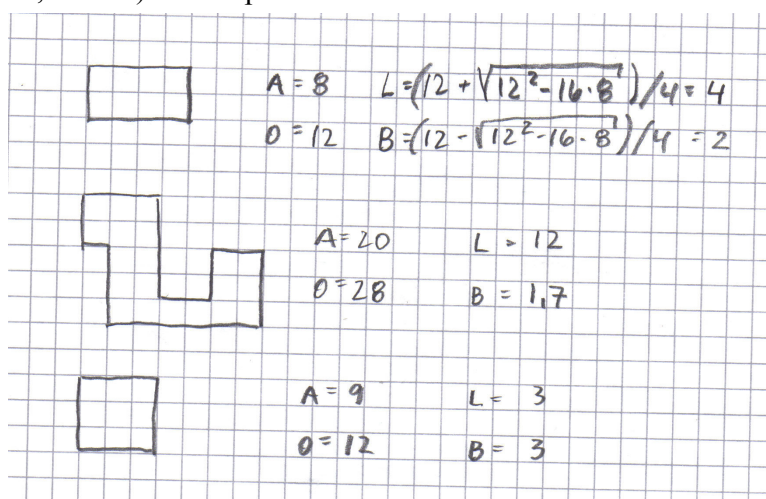 A = 8 L = (12 + √(12² - 16 · 8)) / 4 = 4
O = 12 B = (12 - √(12² - 16 · 8)) / 4 = 2
A = 20 L = 12
O = 28 B = 1,7
A = 9 L = 3
O = 12 B = 3